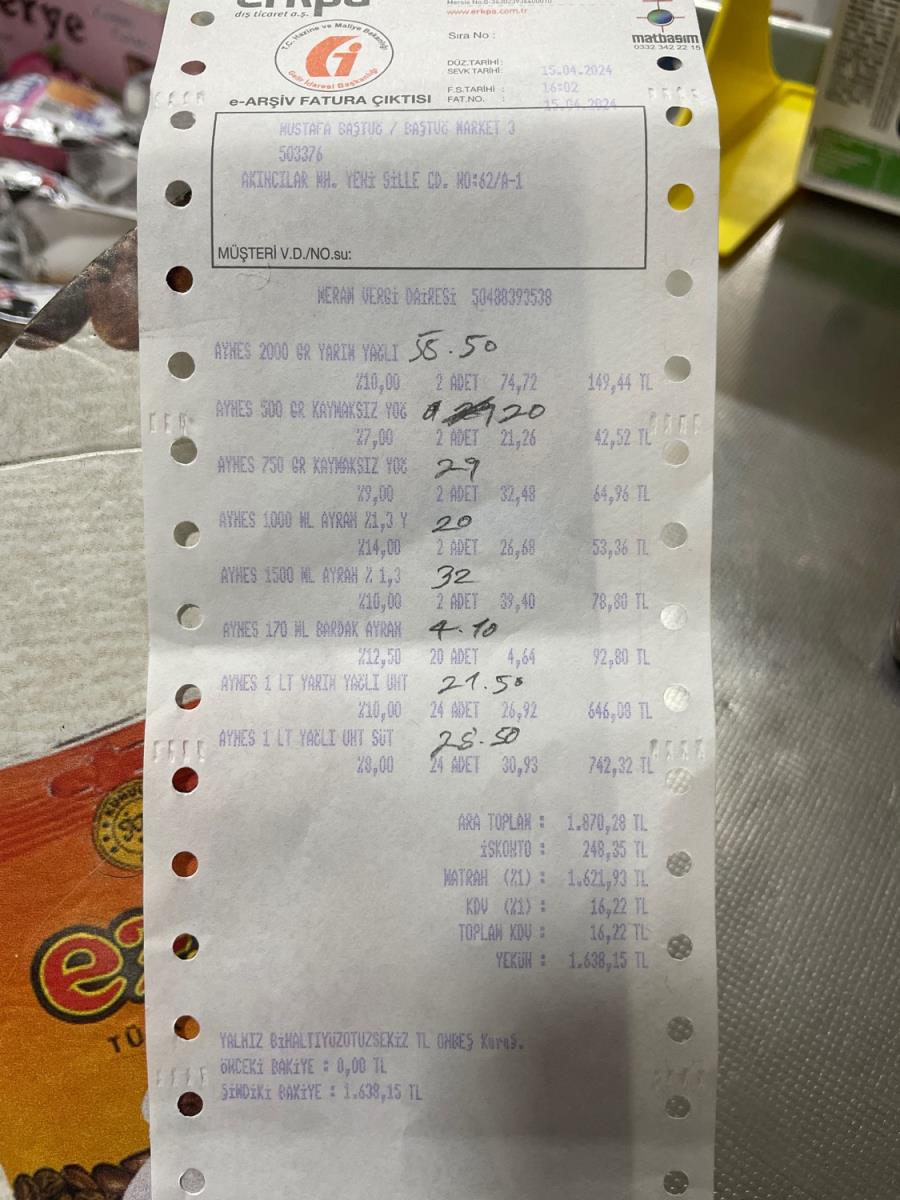 erkpa
dış ticaret a.ş.
www.erkpa.com.tr
matbasım
0332 342 22 15
Sıra No :
T.C. Hazine ve Maliye Bakanlığı
Gelir İdaresi Başkanlığı
DÜZ.TARİHİ :
SEVK TARİHİ : 15.04.2024
F.S.TARİHİ : 16:02
FAT.NO. : 15.04.2024
e-ARŞİV FATURA ÇIKTISI
MUSTAFA BAŞTUĞ / BAŞTUĞ MARKET 3
503376
AKINCILAR MH. YENİ SİLLE CD. NO:62/A-1
MÜŞTERİ V.D./NO.su:
MERAM VERGİ DAİRESİ 50488393538
AYNES 2000 GR YARIM YAĞLI 58.50
%10,00 2 ADET 74,72 149,44 TL
AYNES 500 GR KAYMAKSIZ YOĞ 20
%7,00 2 ADET 21,26 42,52 TL
AYNES 750 GR KAYMAKSIZ YOĞ 29
%9,00 2 ADET 32,48 64,96 TL
AYNES 1000 ML AYRAN %1,3 Y 20
%14,00 2 ADET 26,68 53,36 TL
AYNES 1500 ML AYRAN % 1,3 32
%10,00 2 ADET 39,40 78,80 TL
AYNES 170 ML BARDAK AYRAN 4.10
%12,50 20 ADET 4,64 92,80 TL
AYNES 1 LT YARIM YAĞLI UHT 21.50
%10,00 24 ADET 26,92 646,08 TL
AYNES 1 LT YAĞLI UHT SÜT 28.50
%8,00 24 ADET 30,93 742,32 TL
ARA TOPLAM : 1.870,28 TL
İSKONTO : 248,35 TL
MATRAH (%1) : 1.621,93 TL
KDV (%1) : 16,22 TL
TOPLAM KDV : 16,22 TL
YEKÜN : 1.638,15 TL
YALNIZ BİNALTIYÜZOTUZSEKİZ TL ONBEŞ Kuruş.
ÖNCEKİ BAKİYE : 0,00 TL
ŞİMDİKİ BAKİYE : 1.638,15 TL